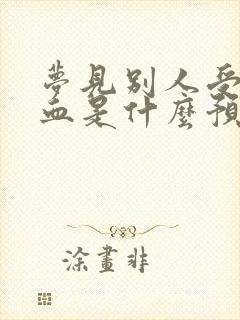 夢見別人受
血是什麼預
涂畫非